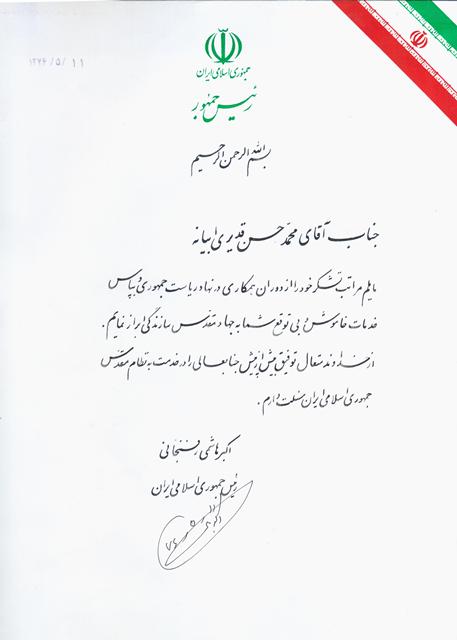 ۱۳۷۶/۵/۱۱
جمهوری اسلامی ایران
رئیس جمهور
بسم الله الرحمن الرحیم
جناب آقای محمد حسن قدیری ابیانه
مایلم مراتب تشکر خود را از دوران همکاری در نهاد ریاست جمهوری و بپاس
خدمات خاموش و بی توقع شما به جهاد مقدس سازندگی ابراز نمایم.
از خداوند متعال توفیق بیش از پیش جنابعالی را در خدمت به نظام مقدس
جمهوری اسلامی ایران مسئلت دارم.
اکبر هاشمی رفسنجانی
رئیس جمهوری اسلامی ایران